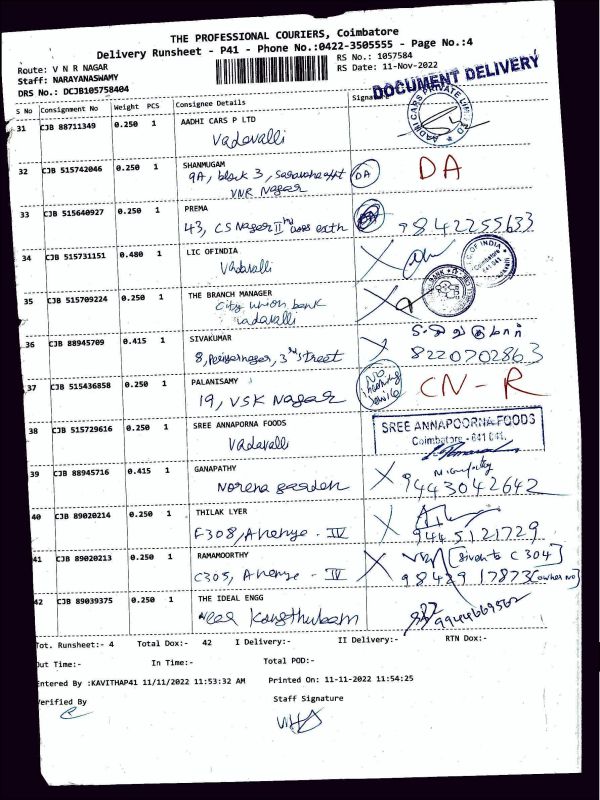 THE PROFESSIONAL COURIERS, Coimbatore
Delivery Runsheet - P41 - Phone No.:0422-3505555 - Page No.:4
Route: V N R NAGAR
RS No.: 1057584
Staff: NARAYANASWAMY
RS Date: 11-Nov-2022
DRS No.: DCJB105758404
DOCUMENT DELIVERY
S No Consignment No Weight PCS Consignee Details
31 CJB 88711349 0.250 1 AADHI CARS P LTD
Vadavalli
AADHI CARS PRIVATE LIMITED
32 CJB 515742046 0.250 1 SHANMUGAM
9A, block 3,
VNR Nagar
DA
DA
33 CJB 515640927 0.250 1 PREMA
43, CS Nagar II nd
9842255633
34 CJB 515731151 0.480 1 LIC OFINDIA
Vadavalli
OF INDIA
Coimbatore
35 CJB 515709224 0.250 1 THE BRANCH MANAGER
City union bank
vadavalli
BANK
36 CJB 88945709 0.415 1 SIVAKUMAR
8, Periyarnagar, 3rd street
8220702863
37 CJB 515436858 0.250 1 PALANISAMY
19, VSK Nagar
NO
CN-R
38 CJB 515729616 0.250 1 SREE ANNAPORNA FOODS
Vadavalli
SREE ANNAPOORNA FOODS
Coimbatore - 641 041.
39 CJB 88945716 0.415 1 GANAPATHY
Norena garden
9443042642
40 CJB 89020214 0.250 1 THILAK LYER
F308, Avenye - IV
9445121729
41 CJB 89020213 0.250 1 RAMAMOORTHY
C305, Avenye - IV
[Given to C 304]
98429 17873 [owner no]
42 CJB 89039375 0.250 1 THE IDEAL ENGG
Near
9944669562
Tot. Runsheet:- 4 Total Dox:- 42 I Delivery:- II Delivery:- RTN Dox:-
Out Time:- In Time:- Total POD:-
Entered By :KAVITHAP41 11/11/2022 11:53:32 AM Printed On: 11-11-2022 11:54:25
Verified By
Staff Signature